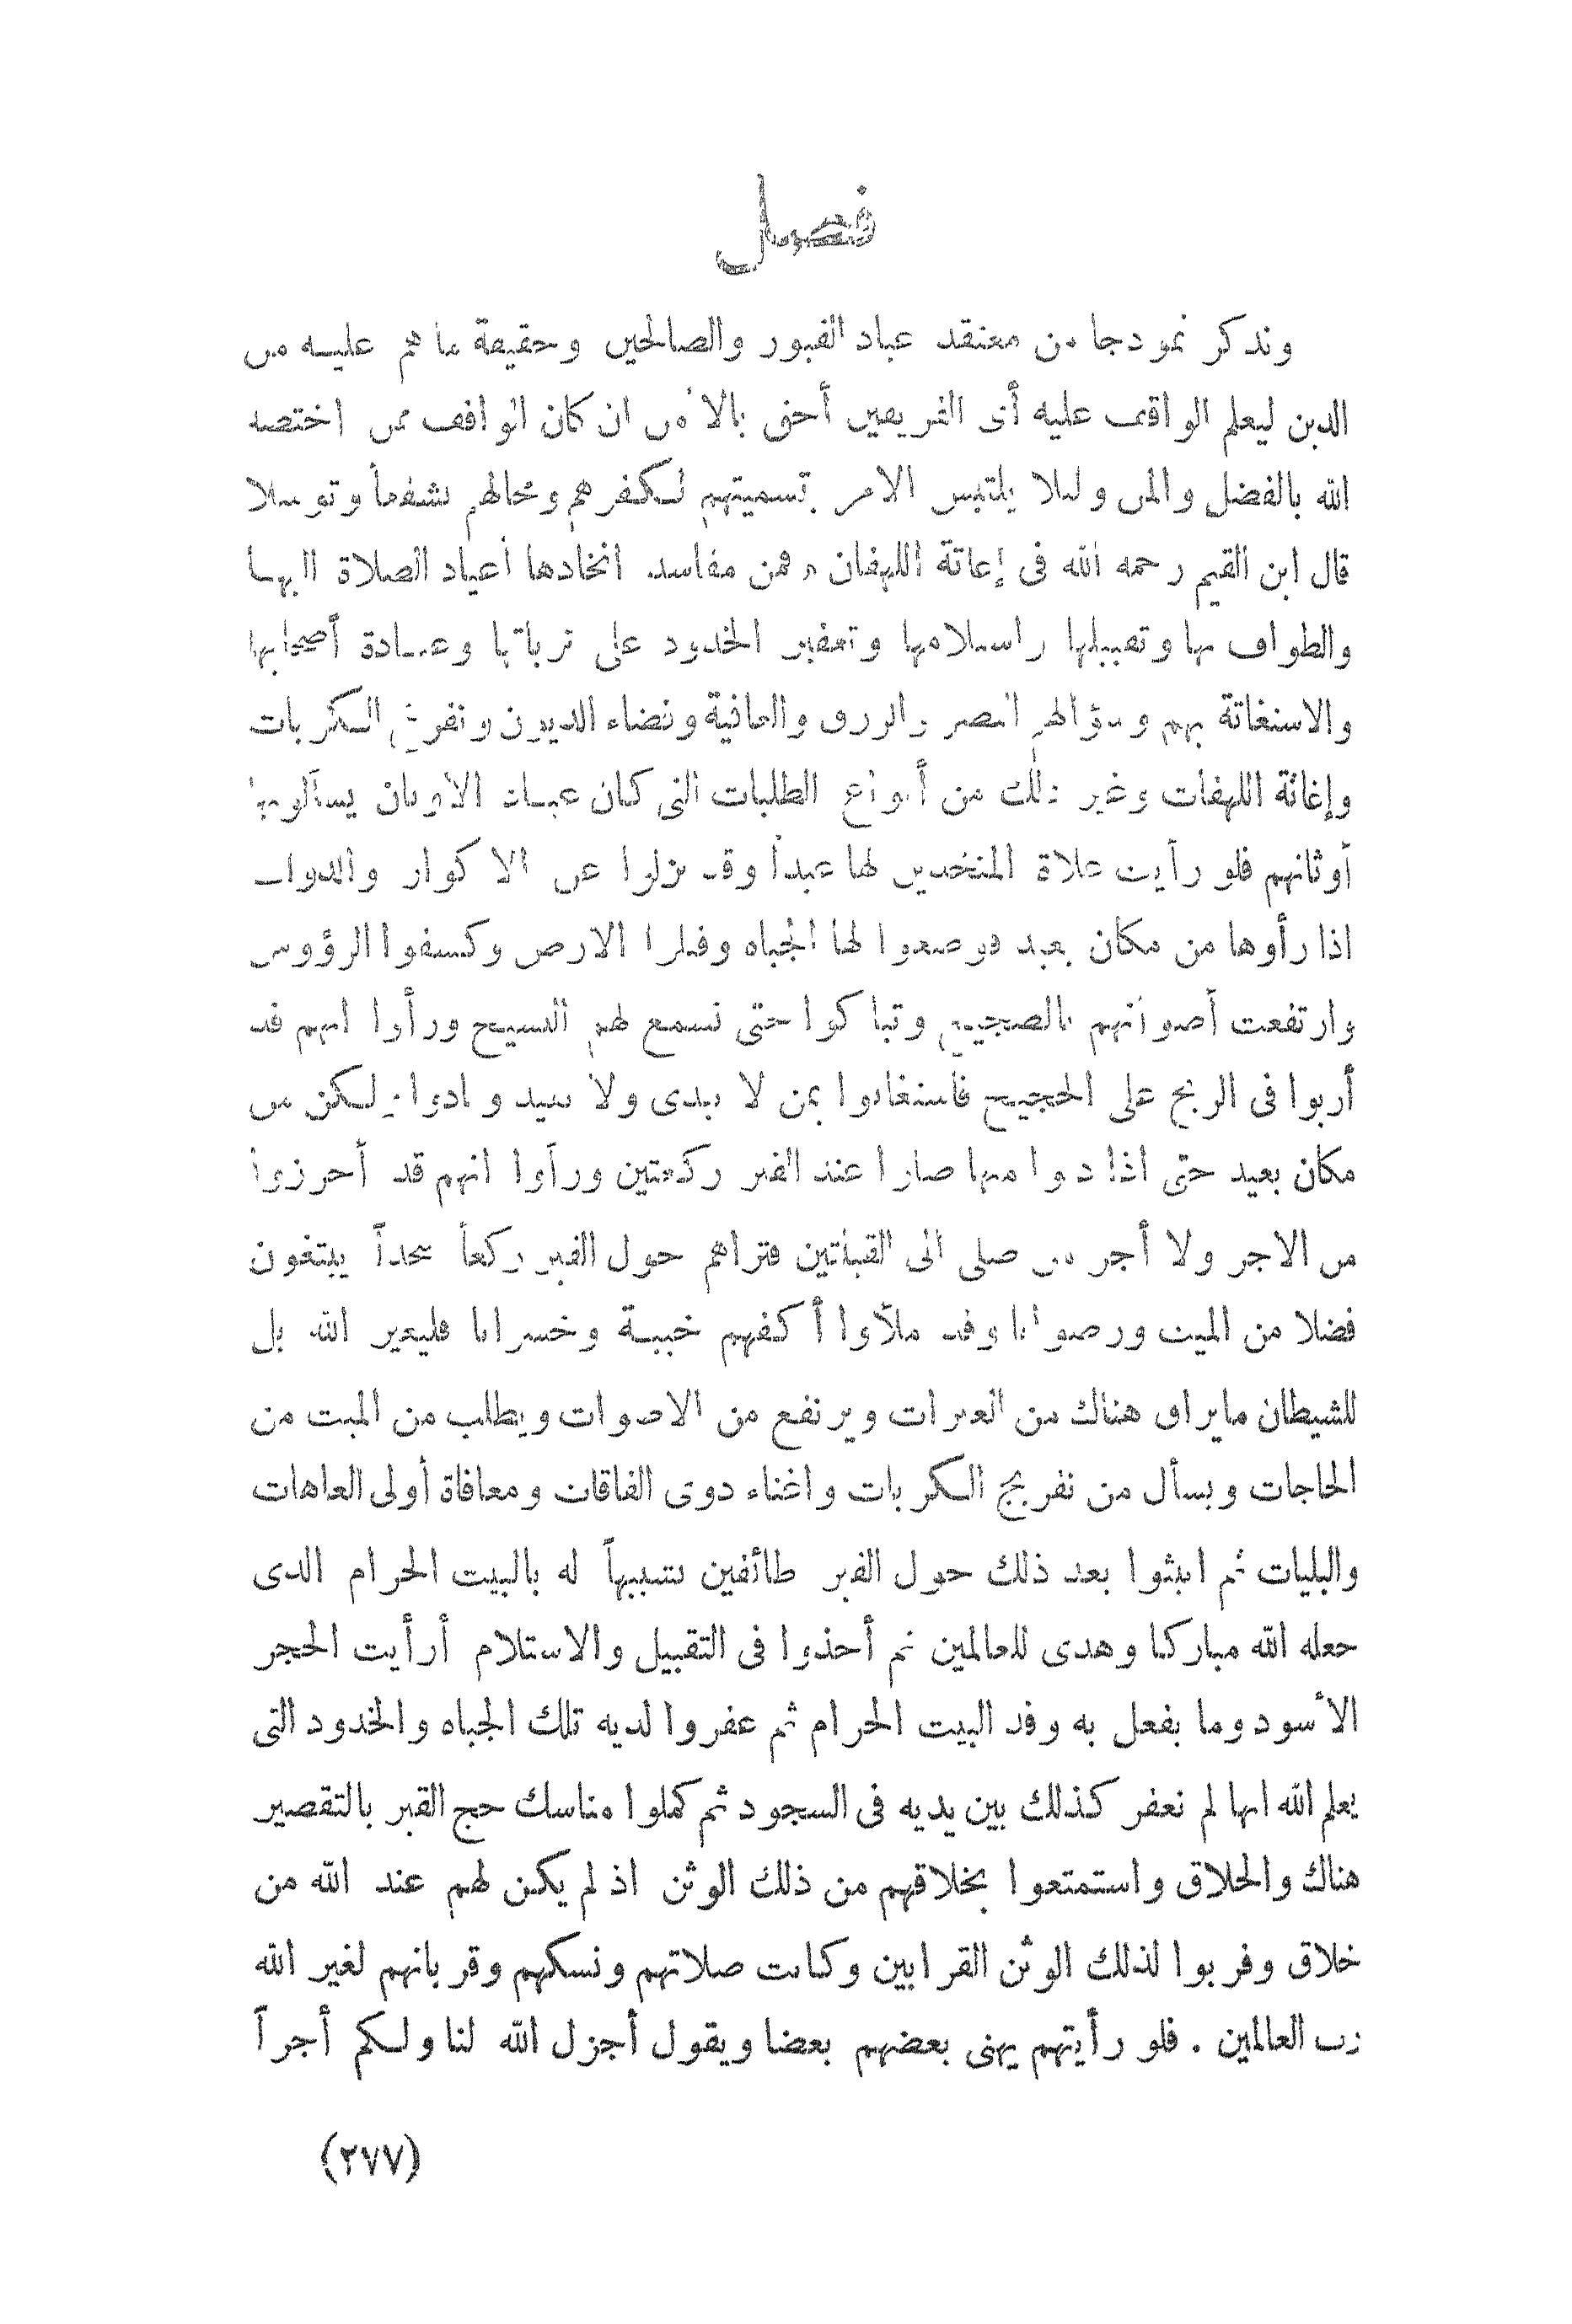 فصل
ونذكر نموذجا من معتقد عباد القبور والصالحين وحقيقة ما هم عليه من
الدين ليعلم الواقف عليه أى الفريقين أحق بالأمن ان كان الواقف ممن اختصه
الله بالفضل والمن ولئلا يلتبس الامر بتسميتهم لكفرهم ومحالهم تشفعاً وتوسلا
قال ابن القيم رحمه الله فى إغاثة اللهفان ومن مفاسد اتخاذها أعياد الصلاة اليها
والطواف بها وتقبيلها واستلامها وتعفير الخدود على ترباتها وعبادة أصحابها
والاستغاثة بهم وسؤالهم النصر والرزق والعافية وقضاء الديون وتفريج الكربات
وإغاثة اللهفات وغير ذلك من أنواع الطلبات التى كان عباد الاوثان يسألونها
أوثانهم فلو رأيت غلاة المتخذين لها عيداً وقد نزلوا عن الاكوار والدواب
اذا رأوها من مكان بعيد فوضعوا لها الجباه وقبلوا الارض وكشفوا الرؤوس
وارتفعت أصواتهم بالضجيج وتباكوا حتى تسمع لهم النشيج ورأوا انهم قد
أربوا فى الربح على الحجيج فاستغاثوا بمن لا يبدى ولا يعيد ونادوا ولكن من
مكان بعيد حتى اذا دنوا منها صلوا عند القبر ركعتين ورأوا انهم قد أحرزوا
من الاجر ولا أجر من صلى الى القبلتين فتراهم حول القبر ركعاً سجداً يبتغون
فضلا من الميت ورضوانا وقد ملأوا أكفهم خيبة وخسرانا فلغير الله بل
للشيطان ما يراق هناك من العبرات ويرتفع من الاصوات ويطلب من الميت من
الحاجات ويسأل من تفريج الكربات واغناء ذوى الفاقات ومعافاة أولى العاهات
والبليات ثم انبثوا بعد ذلك حول القبر طائفين تشبيهاً له بالبيت الحرام الذى
جعله الله مباركا وهدى للعالمين ثم أخذوا فى التقبيل والاستلام أرأيت الحجر
الأسود وما يفعل به وفد البيت الحرام ثم عفروا لديه تلك الجباه والخدود التى
يعلم الله انها لم تعفر كذلك بين يديه فى السجود ثم كملوا مناسك حج القبر بالتقصير
هناك والحلاق واستمتعوا بخلاقهم من ذلك الوثن اذ لم يكن لهم عند الله من
خلاق وقربوا لذلك الوثن القرابين وكانت صلاتهم ونسكهم وقربانهم لغير الله
رب العالمين . فلو رأيتهم يهنى بعضهم بعضا ويقول أجزل الله لنا ولكم أجراً
(٢٧٧)